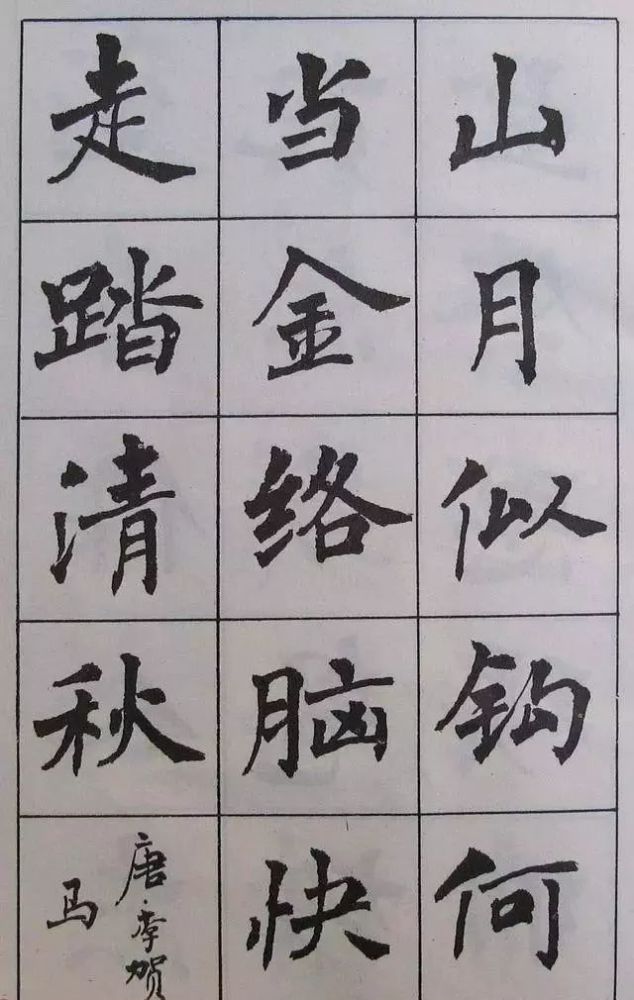 山月似钩何
当金络脑快
走踏清秋
唐·李贺
马